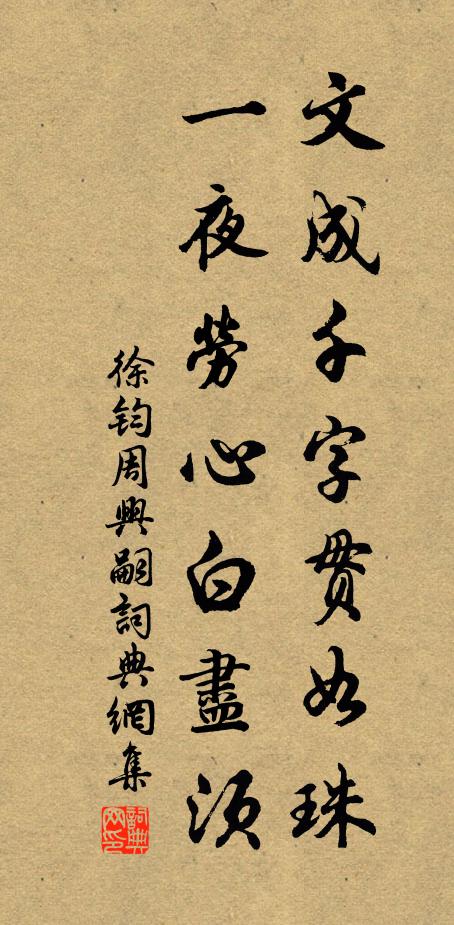 文成千字貫如珠
一夜勞心白盡須
徐鈞周興嗣詞典網集
詞典網印